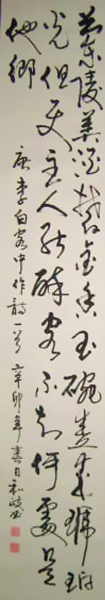 蘭陵美酒鬱金香玉碗盛來琥珀
光但使主人能醉客不知何處是
他鄉
唐李白客中作詩一首辛卯年春日